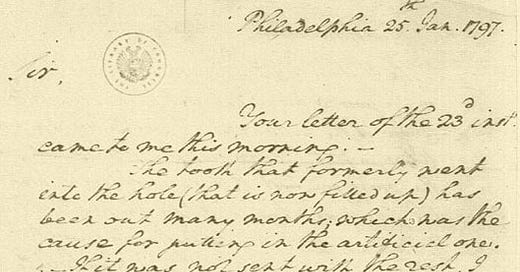 Philadelphia 25th Jan. 1797.
Sir,
Your letter of the 23d inst.
came to me this morning. —
The tooth that formerly went
into the hole (that is now filled up) has
been out many months; which was the
cause for putting in the artificial one.
— If it was not sent with the rest, I